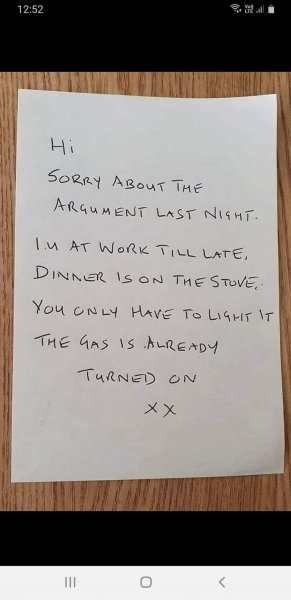 12:52
Vo)) LTE
Hi
SORRY ABOUT THE
ARGUMENT LAST NIGHT.
I.M AT WORK TILL LATE,
DINNER IS ON THE STOVE,
YOU ONLY HAVE TO LIGHT IT
THE GAS IS ALREADY
TURNED ON
XX